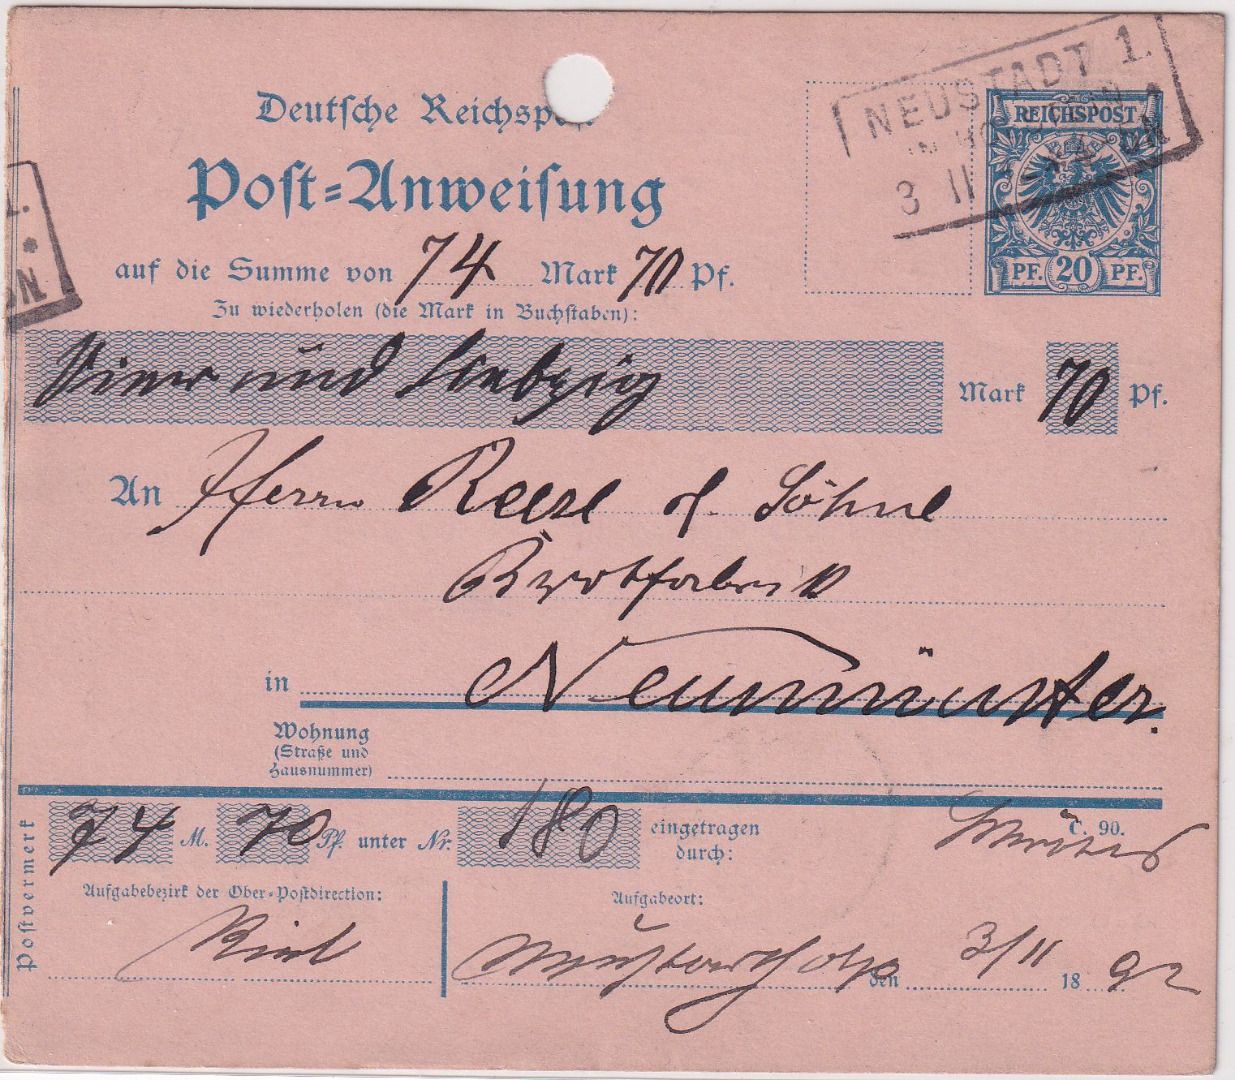 NEUSTADT 1.
3 11
REICHSPOST
PF. 20 PF.
Deutsche Reichsp
Post=Anweisung
auf die Summe von 74 Mark 70 Pf.
Zu wiederholen (die Mark in Buchstaben):
Vier und Siebzig Mark 70 Pf.
An Herrn Reese & Söhne
in Neumünster.
Wohnung
(Straße und
Hausnummer)
Postvermerk
74 M. 70 Pf. unter Nr. 180 eingetragen
durch:
C. 90.
Aufgabebezirk der Ober-Postdirection:
Aufgabeort:
Kiel
Neustadt Holst den 3/11 1892